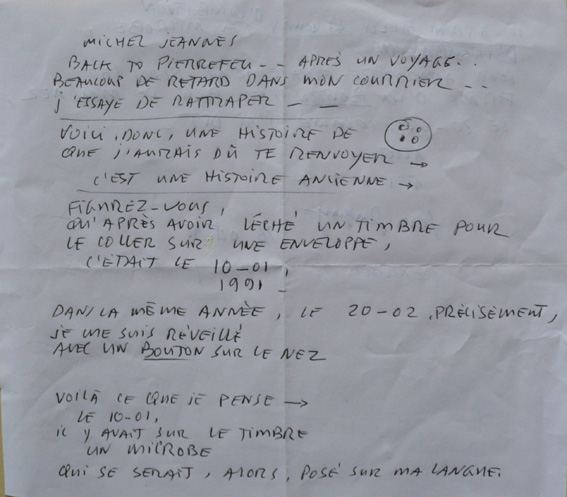 MICHEL JEANNES
BACK TO PIERREFEU -- APRÈS UN VOYAGE..
BEAUCOUP DE RETARD DANS MON COURRIER --
J'ESSAYE DE RATTRAPER — —
VOICI, DONC, UNE HISTOIRE DE
QUE J'AURAIS DÛ TE RENVOYER →
C'EST UNE HISTOIRE ANCIENNE →
FIGUREZ-VOUS,
QU'APRÈS AVOIR LÉCHÉ UN TIMBRE POUR
LE COLLER SUR UNE ENVELOPPE,
C'ÉTAIT LE 10-01,
1991 —
DANS LA MÊME ANNÉE, LE 20-02, PRÉCISÉMENT,
JE ME SUIS RÉVEILLÉ
AVEC UN BOUTON SUR LE NEZ
VOILÀ CE QUE JE PENSE →
LE 10-01,
IL Y AVAIT SUR LE TIMBRE
UN MICROBE
QUI SE SERAIT, ALORS, POSÉ SUR MA LANGUE.